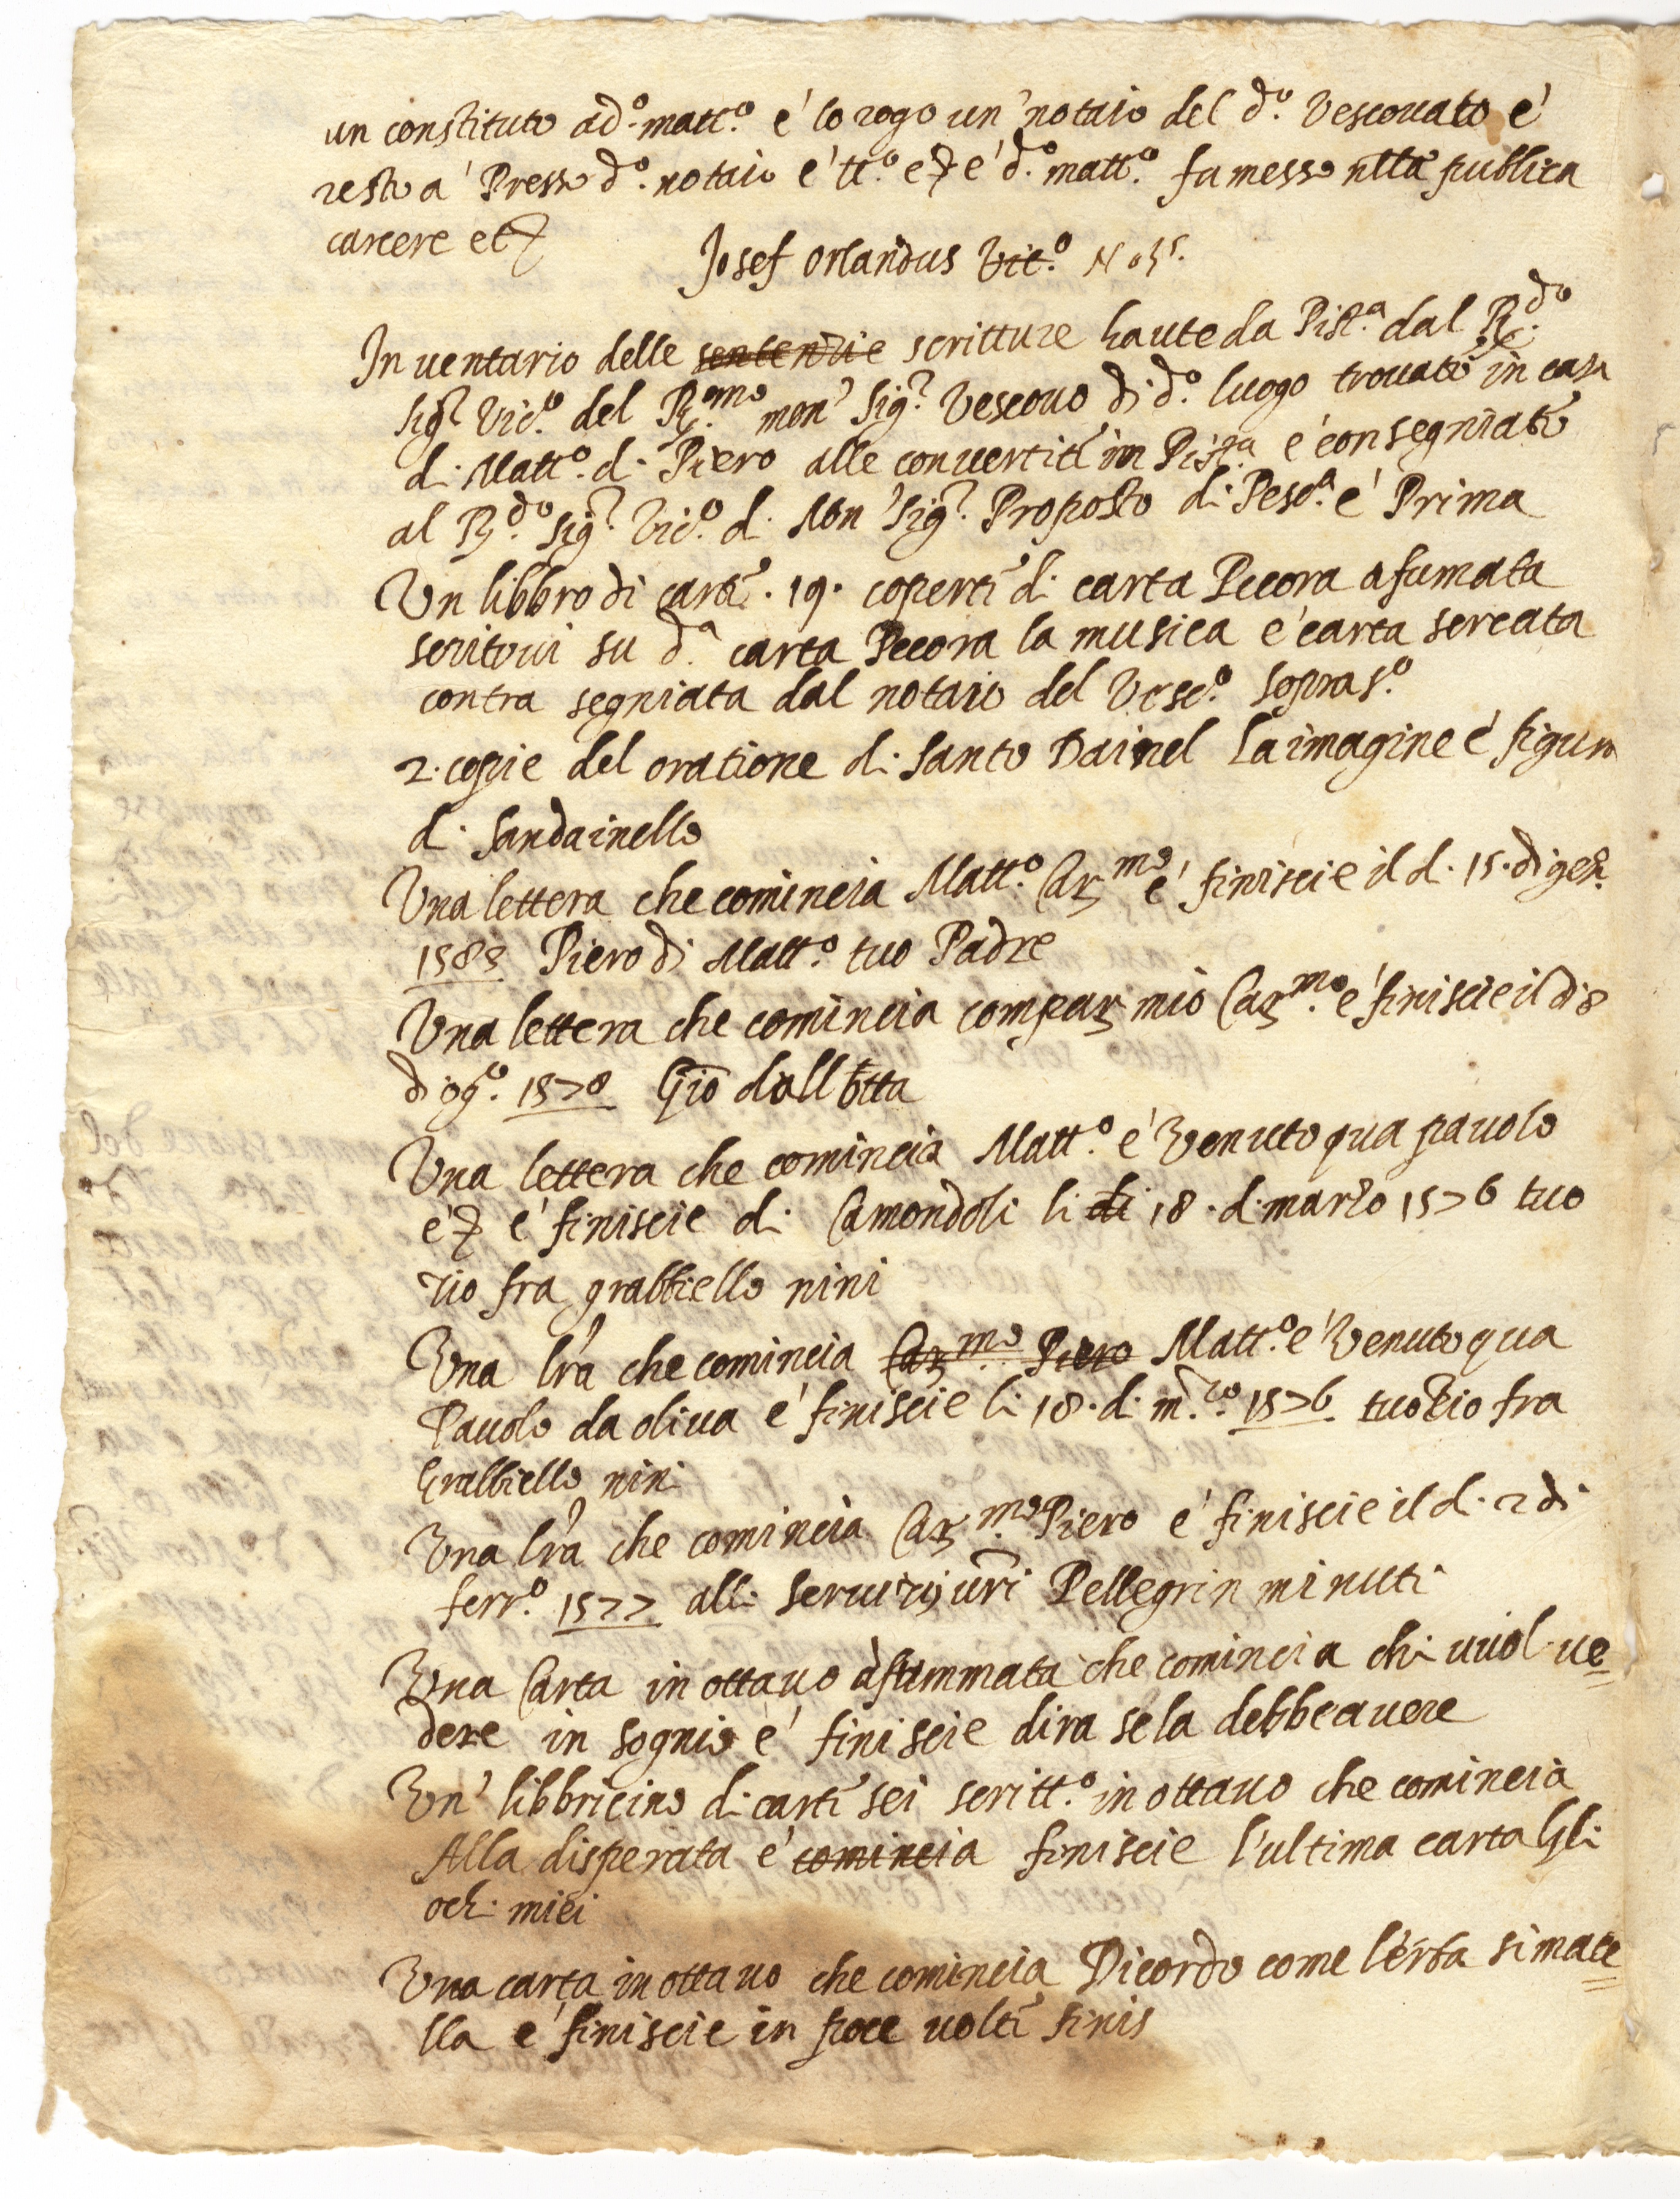 un constituto a d.o matt.o e' lo rogo un' notaio del d.o Vescouato e'
resto a' Presso d.o notaio e' tt.o etc e' d.o matt.o fu messo nlla publica
carcere etc
Josef Orlandus Vic.o
In uentario delle sententie scritture haute da Pist.a dal R.do
Sig.r Vic.o del R.mo mon' Sig.r Vescouo di d.o luogo trouati in casa
di Matt.o di Piero alle conuertiti in Pist.a e' consegniati
al R.do Sig.r Vic.o di Mon' Sig.r Proposto di Pesc.a e' Prima
Un libbro di carti . 19 . coperti di carta Pecora afumata
scritoui su d.a carta Pecora la musica e' carta sercata
contra segniata dal notaio del Vesc.o sopras.o
2. copie del oratione di Santo Dainel la imagine e' figura
di Sandainello
Una lettera che comincia Matt.o Car.mo e' finiscie il di . 15 . di gen.
1583 Piero di Matt.o tuo Padre
Una lettera che comincia compar mio Car.mo e' finiscie il di 8
d'og.o 1578 Gio dall
Una lettera che comincia Matt.o e' Venuto qua pauolo
etc e' finiscie di Camondoli li di 18 . di marzo 1576 tuo
zio fra grabbiello nini
Una lra che comincia Car.mo Piero Matt.o e' Venuto qua
Pauolo da oliua e' finiscie li 18 . di m.zo 1576 tuo zio fra
Grabbiello nini
Una lra che comincia Car.mo Piero e' finiscie il di . 2 di
ferr.o 1577 alli seruitij uri Pellegrin minuti
Una Carta in ottauo afummata che comincia chi uuol ue=
dere in sognio e' finiscie dira se la debbe auere
Un' libbricino di carti sei scritt.o in ottauo che comincia
Alla disperata e' comincia finiscie l'ultima carta Gli
ochi miei
Una carta in ottauo che comincia Dicordo come l'erba si mate=
lla e' finiscie in poce uolti finis